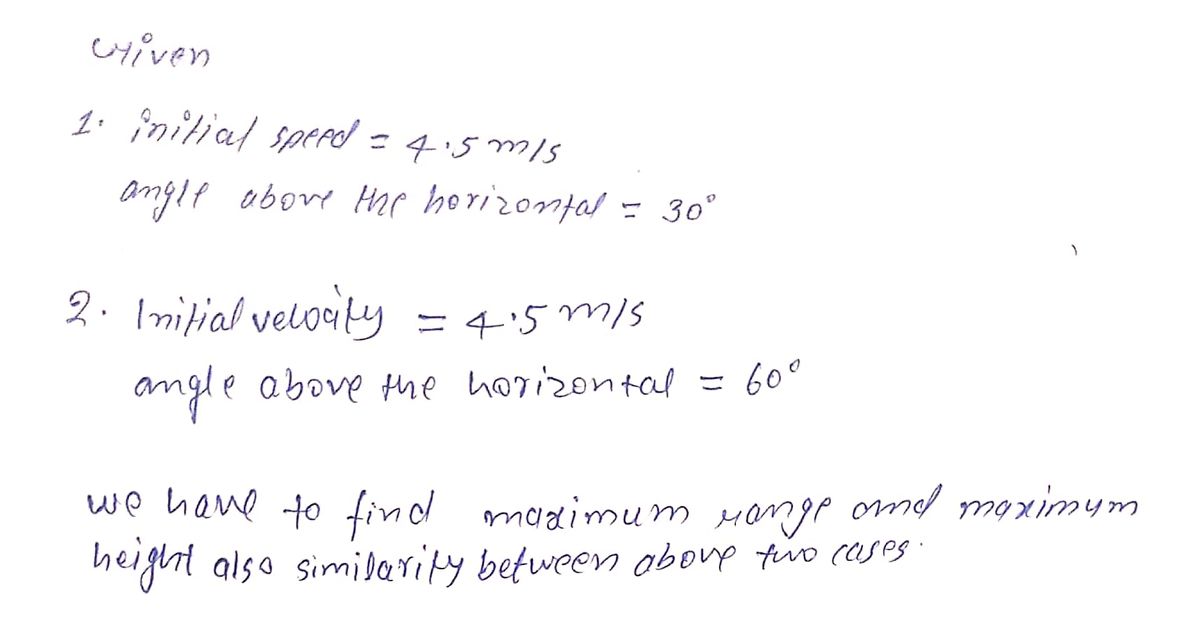 Given
1. initial speed = 4.5 m/s
angle above the horizontal = 30°
2. Initial velocity = 4.5 m/s
angle above the horizontal = 60°
we have to find maximum range and maximum
height also similarity between above two cases.